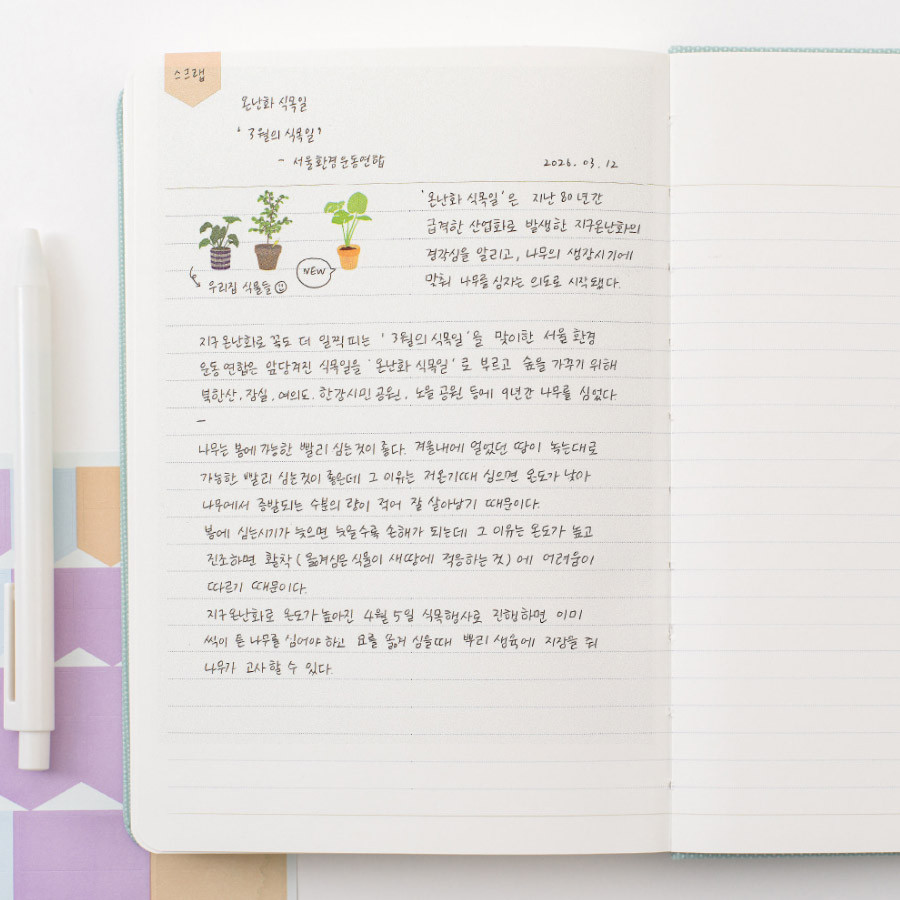 스크랩
온난화 식목일
'3월의 식목일'
- 서울환경운동연합
2026.03.12
'온난화 식목일'은 지난 80년간
급격한 산업화로 발생한 지구온난화의
경각심을 알리고, 나무의 생장시기에
맞춰 나무를 심자는 의도로 시작됐다.
NEW
우리집 식물들
지구온난화로 꽃도 더 일찍 피는 '3월의 식목일'을 맞이한 서울환경
운동연합은 앞당겨진 식목일을 '온난화 식목일'로 부르고 숲을 가꾸기 위해
북한산, 잠실, 여의도, 한강시민공원, 노을공원 등에 9년간 나무를 심었다
-
나무는 봄에 가능한 빨리 심는것이 좋다. 겨울내에 얼었던 땅이 녹는대로
가능한 빨리 심는것이 좋은데 그 이유는 저온기때 심으면 온도가 낮아
나무에서 증발되는 수분의 양이 적어 잘 살아남기 때문이다.
봄에 심는시기가 늦으면 늦을수록 손해가 되는데 그 이유는 온도가 높고
건조하면 활착(옮겨심은 식물이 새땅에 적응하는 것)에 어려움이
따르기 때문이다.
지구온난화로 온도가 높아진 4월 5일 식목행사로 진행하면 이미
싹이 튼 나무를 심어야 하고 묘를 옮겨 심을때 뿌리 생육에 지장을 줘
나무가 고사할 수 있다.